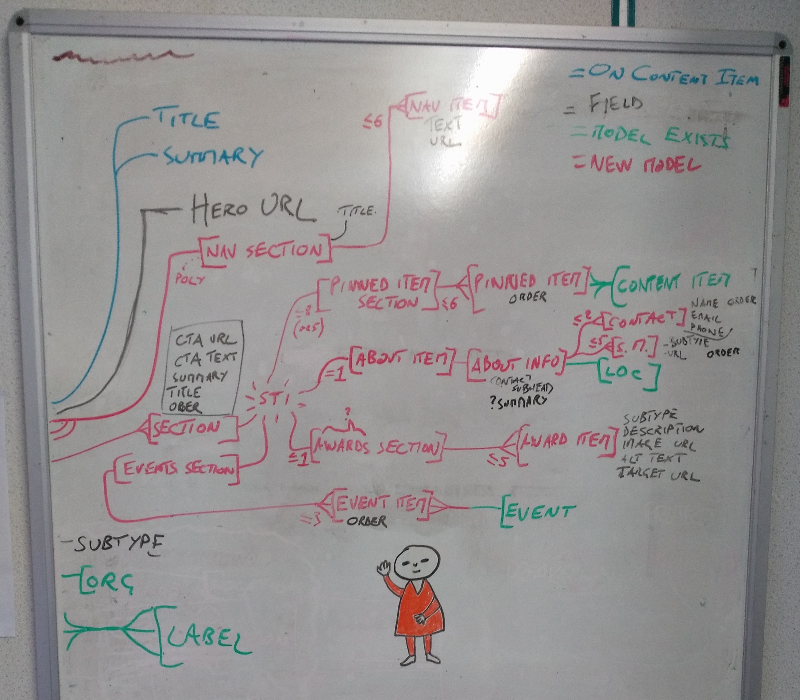 = ON CONTENT ITEM
= FIELD
= MODEL EXISTS
= NEW MODEL
TITLE
SUMMARY
HERO URL
≤6
NAV ITEM
TEXT
URL
NAV SECTION
TITLE
POLY
PINNED ITEM
SECTION
≤6
PINNED ITEM
ORDER
CONTENT ITEM
?
CTA URL
CTA TEXT
SUMMARY
TITLE
STI
SECTION
EVENTS SECTION
=1
ABOUT ITEM
ABOUT INFO
CONTACT
SUBHEAD
? SUMMARY
CONTACT
NAME ORDER
EMAIL
PHONE
≤5
S.M.
SUBTYPE
URL
ORDER
LOC
?
≤1
AWARDS SECTION
≤5
AWARD ITEM
SUBTYPE
DESCRIPTION
IMAGE URL
ALT TEXT
TARGET URL
=3
EVENT ITEM
ORDER
EVENT
SUBTYPE
ORG
LABEL